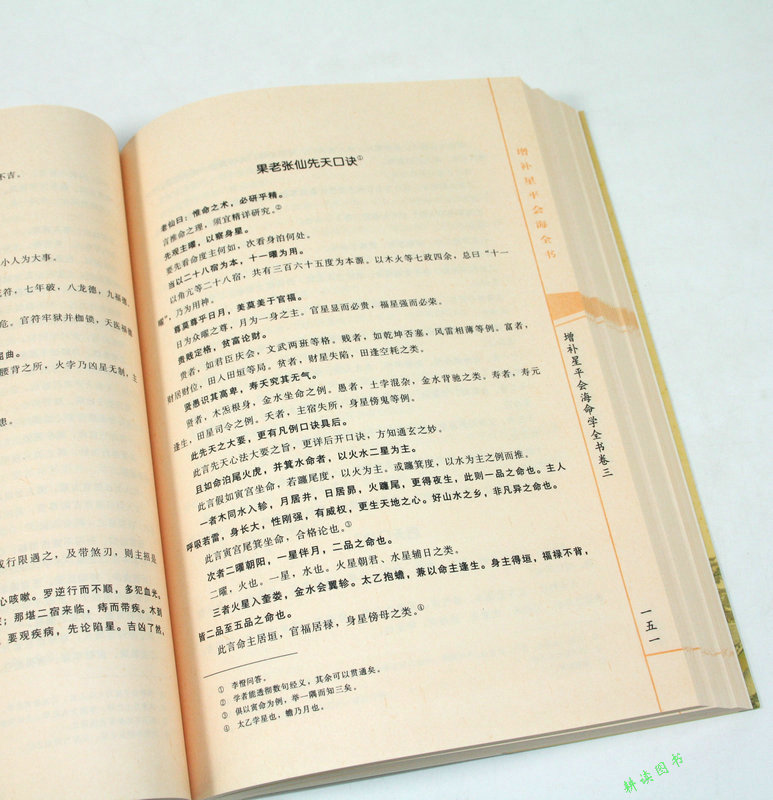 不吉。
小人为大事。
官符，七年破，八龙德，九福德，
危。官符牢狱并枷锁，天医福德
屈曲。
腰背之所，火孛乃凶星无制，主
患。
或行限遇之，及带煞刃，则主招是
心咳嗽。罗逆行而不顺，多犯血光，
；那堪二宿来临，痔而带疾。木到
要观疾病，先论陷星。吉凶了然，
果老张仙先天口诀①
老仙曰：惟命之术，必研乎精。
言推命之理，须宜精详研究。②
先观主曜，以察身星。
要先看命度主何如，次看身泊何处。
当以二十八宿为本，十一曜为用。
以角亢等二十八宿，共有三百六十五度为本源。以木火等七政四余，总曰“十一
曜”，乃为用神。
尊莫尊乎日月，美莫美于官福。
日为众曜之尊，月为一身之主。官星显而必贵，福星强而必荣。
贵贱定格，贫富论财。
贵者，如君臣庆会，文武两班等格。贱者，如乾坤否塞，风雷相薄等例。富者，
财居财位，田人田垣等局。贫者，财星失陷，田逢空耗之类。
贤愚识其高卑，寿夭究其无气。
贤者，木炁根身，金水坐命之例。愚者，土孛混杂，金水背驰之类。寿者，寿元
逢生，田星司令之例。夭者，主宿失所，身星傍鬼等例。
此先天之大要，更有凡例口诀具后。
此言先天心法大要之旨，更详后开口诀，方知通玄之妙。
且如命泊尾火虎，并箕水命者，以火水二星为主。
此言假如寅宫坐命，若躔尾度，以火为主。或躔箕度，以水为主之例而推。
一者木同水入轸，月居井，日居昴，火躔尾，更得夜生，此则一品之命也。主人
呼吸若雷，身长大，性刚强，有威权，更生天地之心。好山水之乡，非凡异之命也。
此言寅宫尾箕坐命，合格论也。③
次者二曜朝阳，一星伴月，二品之命也。
二曜，火也。一星，水也。火星朝君、水星辅日之类。
三者火星入奎娄，金水会翼轸。太乙抱蟾，兼以命主逢生。身主得垣，福禄不背，
皆二品至五品之命也。
此言命主居垣，官福居禄，身星傍母之类。④
① 李憕问答。
② 学者能透彻数句经义，其余可以贯通矣。
③ 俱以寅命为例，举一隅而知三矣。
④ 太乙孛星也，蟾乃月也。
增补星平会海全书
增补星平会海命学全书卷三
一五一
耕读图书